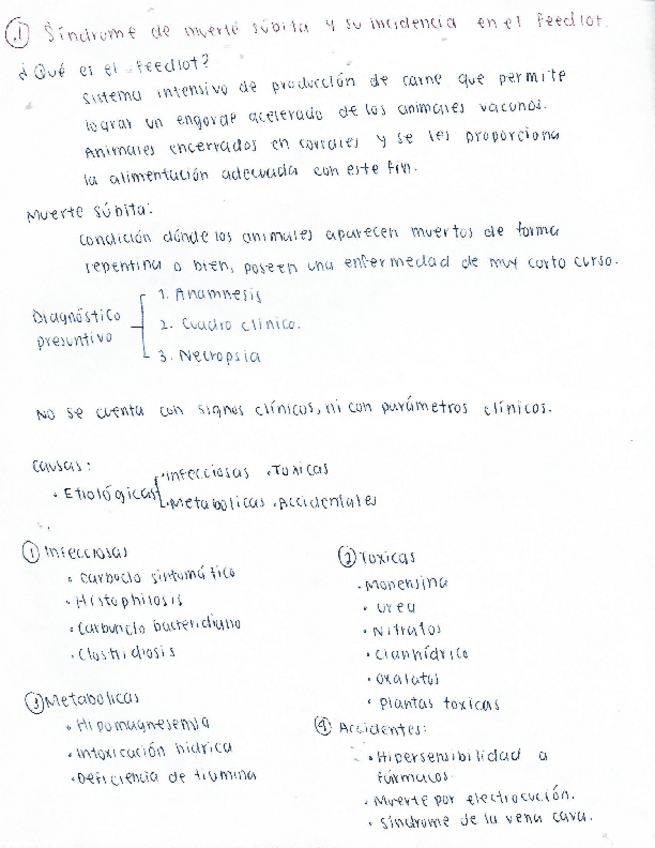 .1 Síndrome de muerte súbita y su incidencia en el Feedlot.
¿Qué es el Feedlot?
Sistema intensivo de producción de carne que permite
lograr un engorde acelerado de los animales vacunos.
Animales encerrados en corrales y se les proporciona
la alimentación adecuada con este fin.
Muerte súbita:
Condición dónde los animales aparecen muertos de forma
repentina o bien, poseen una enfermedad de muy corto curso.
Diagnóstico presuntivo
1. Anamnesis
2. Cuadro clínico.
3. Necropsia
No se cuenta con signos clínicos, ni con parámetros clínicos.
Causas:
• Etiológicas
• Infecciosas • Toxicas
• Metabolicas • Accidentales
① Infecciosas
• Carbuclo sintomático
• Histophilosis
• Carbunclo bacteridiano
• Clostridiosis
② Toxicas
• Monensina
• Urea
• Nitratos
• Cianhídrico
• Oxalatos
• Plantas toxicas
③ Metabolicas
• Hipomagnesemia
• Intoxicación hidrica
• Deficiencia de tiamina
④ Accidentes:
• Hipersensibilidad a
fármacos.
• Muerte por electrocución.
• Síndrome de la vena cava.